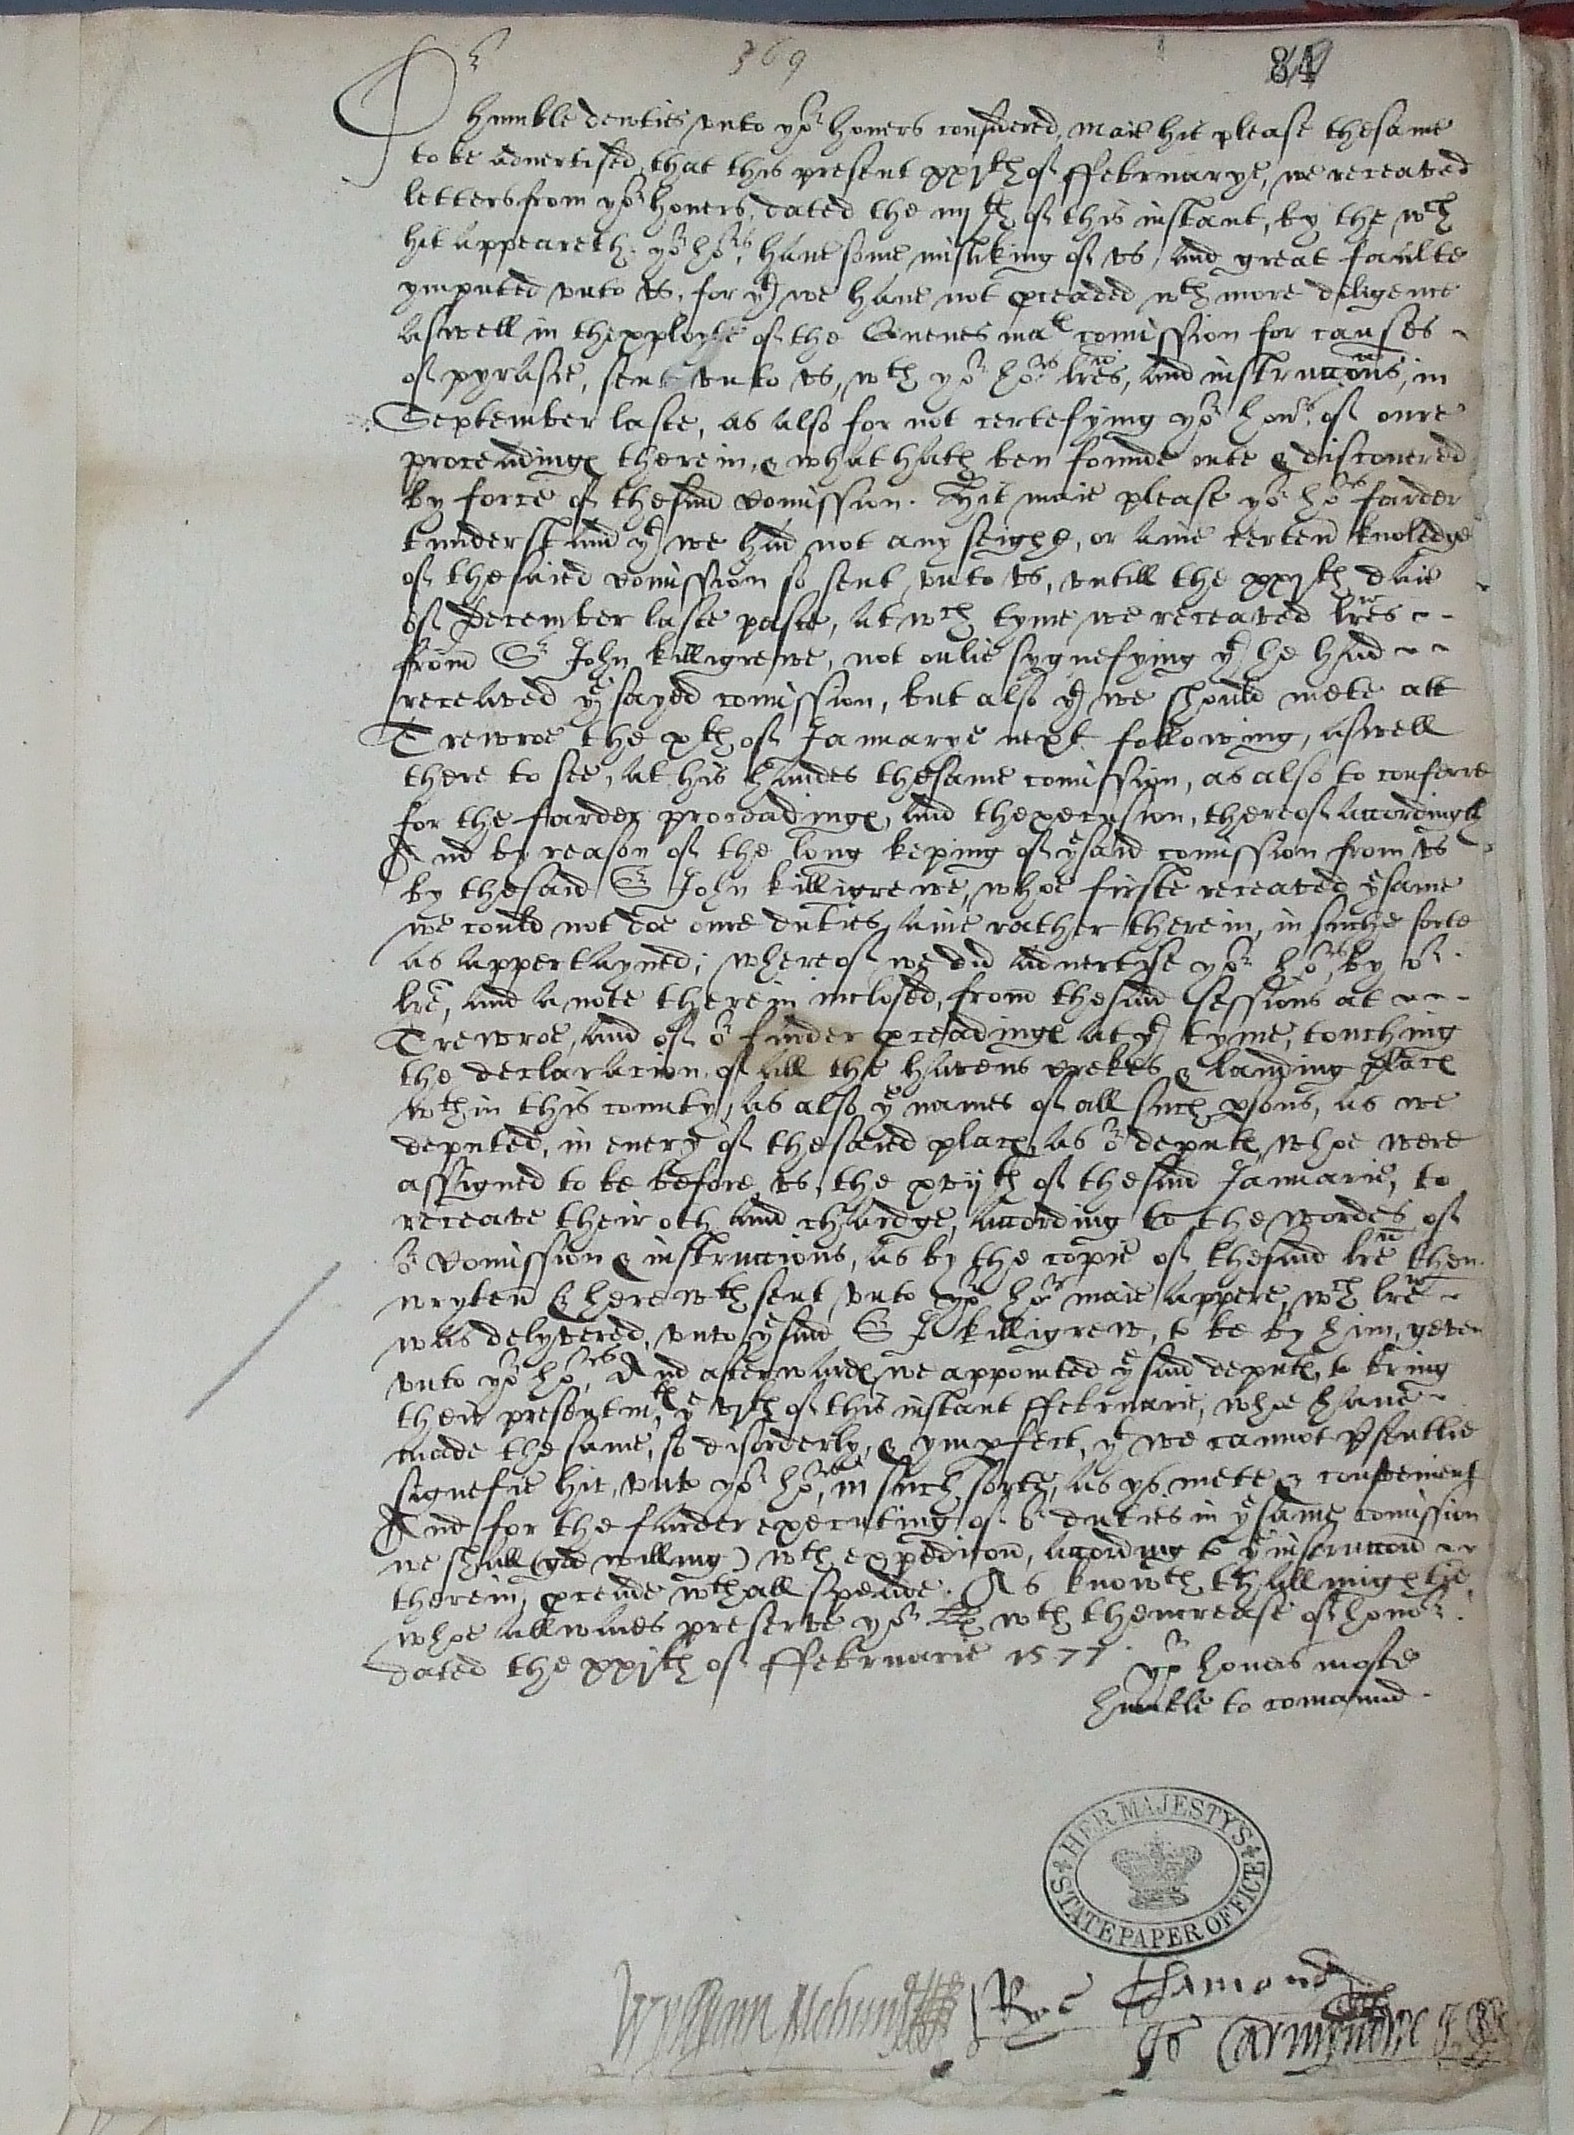 369
84
Or
humble dewties vnto yor honers considered, maie hit please thesame
to be advertised, that this present xxjth of ffebruarye, we receaved
letters from yor honers, dated the iiijth of this instant, by the wch
hit appeareth yor hors, have some misliking of vs, and great faulte
ymputed vnto vs, for yt we have not preaded wth more diligence
aswell in thexployte of the Quenes mats comission for causes
of pyrasie, sent vnto vs, wth yor hors lres, and instruccons, in
September laste, as also for not certefying yor honrs of oure
proceadings therein, & what hath ben founde oute & discovered
by force of thesaid comission. Hit maie please yor hors farder
tunderstand yt we had not any seight, or anie certen knoledge
of thesaied comission so sent vnto vs, vntill the xxjth daie
of December laste paste, at wch tyme we receaved lres
from Sr John killigrewe, not onlie sygnefying yt he had
receaved ye sayed comission, but also yt we should mete att
Trewroe the xth of Januarye next following, aswell
there to see, at his handes thesame comission, as also to conferre
for the farder proceadings, and thexecusion, thereof accordingly
And by reason of the long keping of ye said comission from vs
by thesaid Sr John killigrewe, whoe firste receaved ye same
we could not doe oure duties anie rather therein, in suche sorte
as appertayned; whereof we did advertise yor hors, by or
lre, and a note therein inclosed, from thesaid sessions at
Trewroe, and of or farder preadings at yt tyme, touching
the declaracion of all the havens crekes & landing places
wthin this county, as also ye names of all such psons, as we
deputed, in every of thesaied places as or deputs, whoe were
assigned to be before vs, the xvijth of thesaid Januarie, to
receave their oth and chardge, according to the wordes of
or comission & instruccions, as by the copie of thesaid lre then
wryten & herewth sent vnto yor hors maie appere, wch lre
was delyvered, vnto ye said Sr J killigrew, to be by him, geven
vnto yor hors, And afterwards we appointed ye said deputs, to bring
their presentmts, ye vjth of this instant ffebruarie, whoe have
made thesame, so disorderly, & ympfect, yt we cannot psentlie
signefie hit, vnto yor hors, in such sorte, as ys mete & convenient
And for the farder executing of or duties in ye same comission
we shall (god willing) wth expedicon, according to ye instruccon
therein, preade wth all speade. As knowth thallmightie
whoe allwaies preserve yor Lps wth thencrease of honor.
dated the xxjth of ffebruarie 1577
yor honers moste
humble to comaund
HER MAJESTY'S STATE PAPER OFFICE
Wylliam Mohun
Ric Chamond
Jo Carmynowe